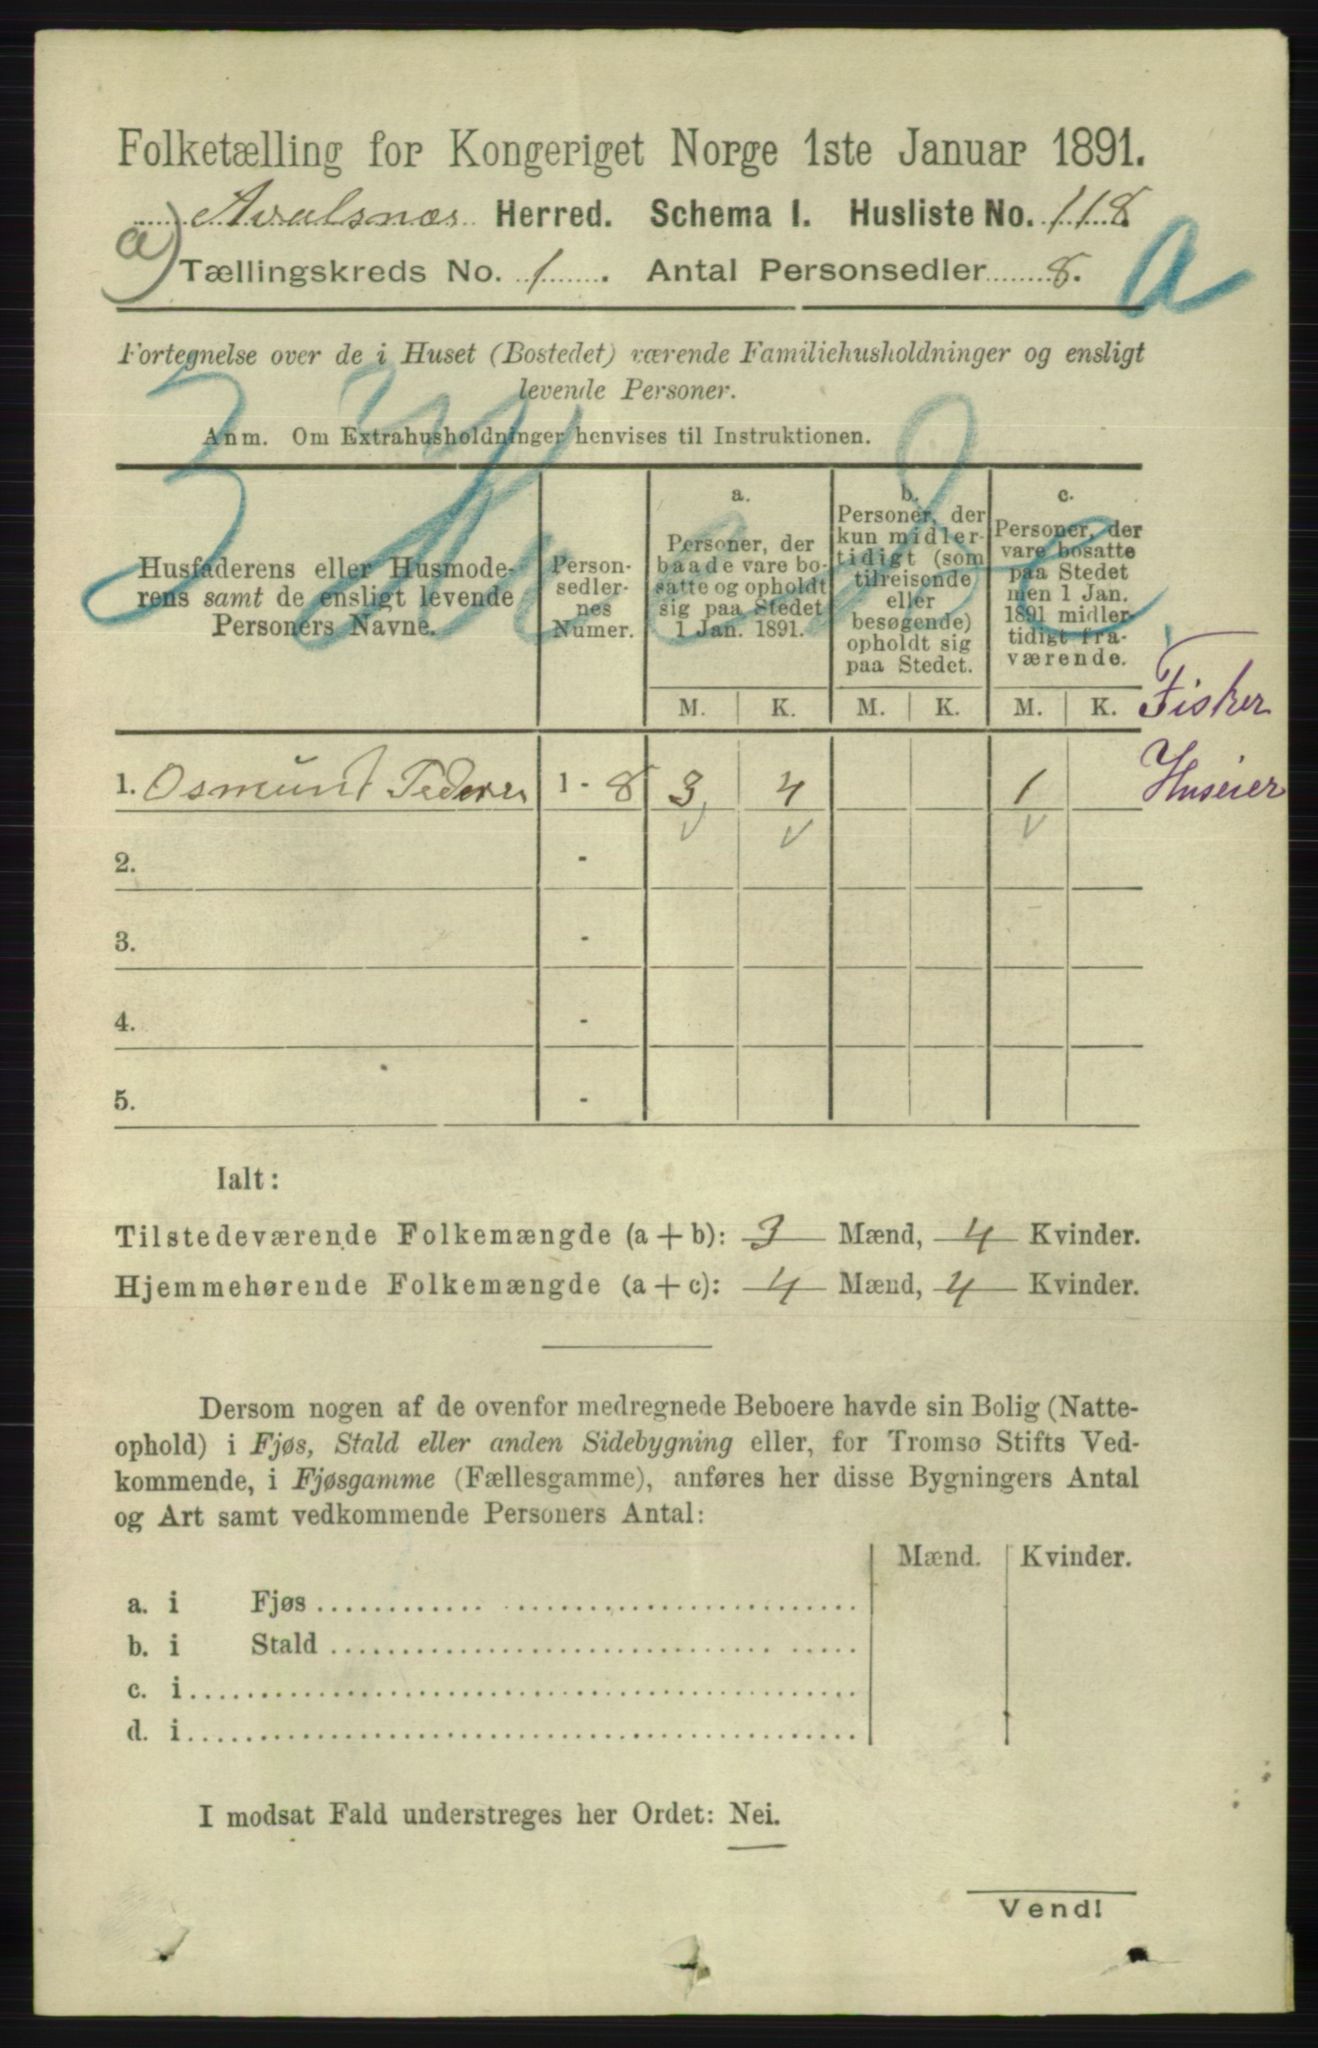 Folketælling for Kongeriget Norge 1ste Januar 1891.
Avalsnæs Herred. Schema I. Husliste No. 118.
a) Tællingskreds No. 1. Antal Personsedler 8. a
Fortegnelse over de i Huset (Bostedet) værende Familiehusholdninger og ensligt
levende Personer.
Anm. Om Extrahusholdninger henvises til Instruktionen.
Husfaderens eller Husmode-
rens samt de ensligt levende
Personers Navne.
Person-
sedler-
nes
Numer.
a.
Personer, der
baade vare bo-
satte og opholdt
sig paa Stedet
1 Jan. 1891.
b.
Personer, der
kun midler-
tidigt (som
tilreisende
eller
besøgende)
opholdt sig
paa Stedet.
c.
Personer, der
vare bosatte
paa Stedet
men 1 Jan.
1891 midler-
tidigt fra-
værende.
M. K. M. K. M. K.
Fisker
Huseier
1. Osmund 1 - 8 3 4 1
2. -
3. -
4. -
5. -
Ialt:
Tilstedeværende Folkemængde (a + b): 3 Mænd, 4 Kvinder.
Hjemmehørende Folkemængde (a + c): 4 Mænd, 4 Kvinder.
Dersom nogen af de ovenfor medregnede Beboere havde sin Bolig (Natte-
ophold) i Fjøs, Stald eller anden Sidebygning eller, for Tromsø Stifts Ved-
kommende, i Fjøsgamme (Fællesgamme), anføres her disse Bygningers Antal
og Art samt vedkommende Personers Antal:
Mænd. Kvinder.
a. i Fjøs
b. i Stald
c. i
d. i
I modsat Fald understreges her Ordet: Nei.
Vend!